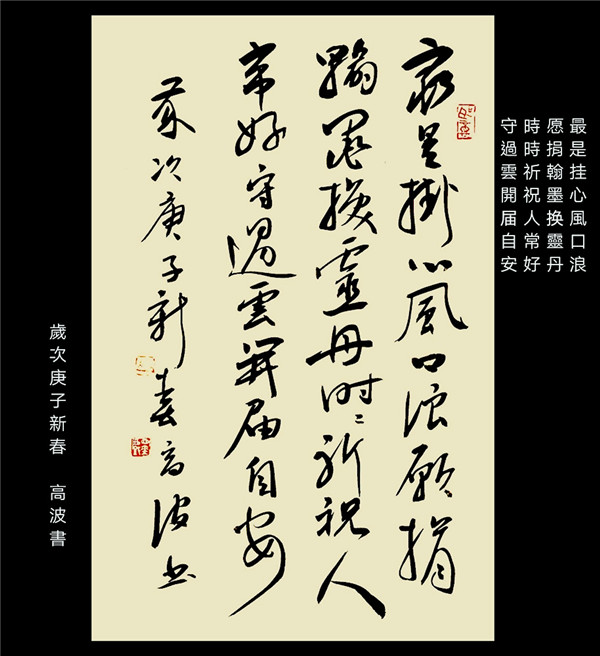 最是挂心風口浪
愿捐翰墨换靈丹
時時祈祝人常好
守過雲開届自安
最是掛心風口浪願捐
翰墨换靈丹时〻祈祝人
常好守過雲開届自安
歲次庚子新春高波书
歲次庚子新春 高波書